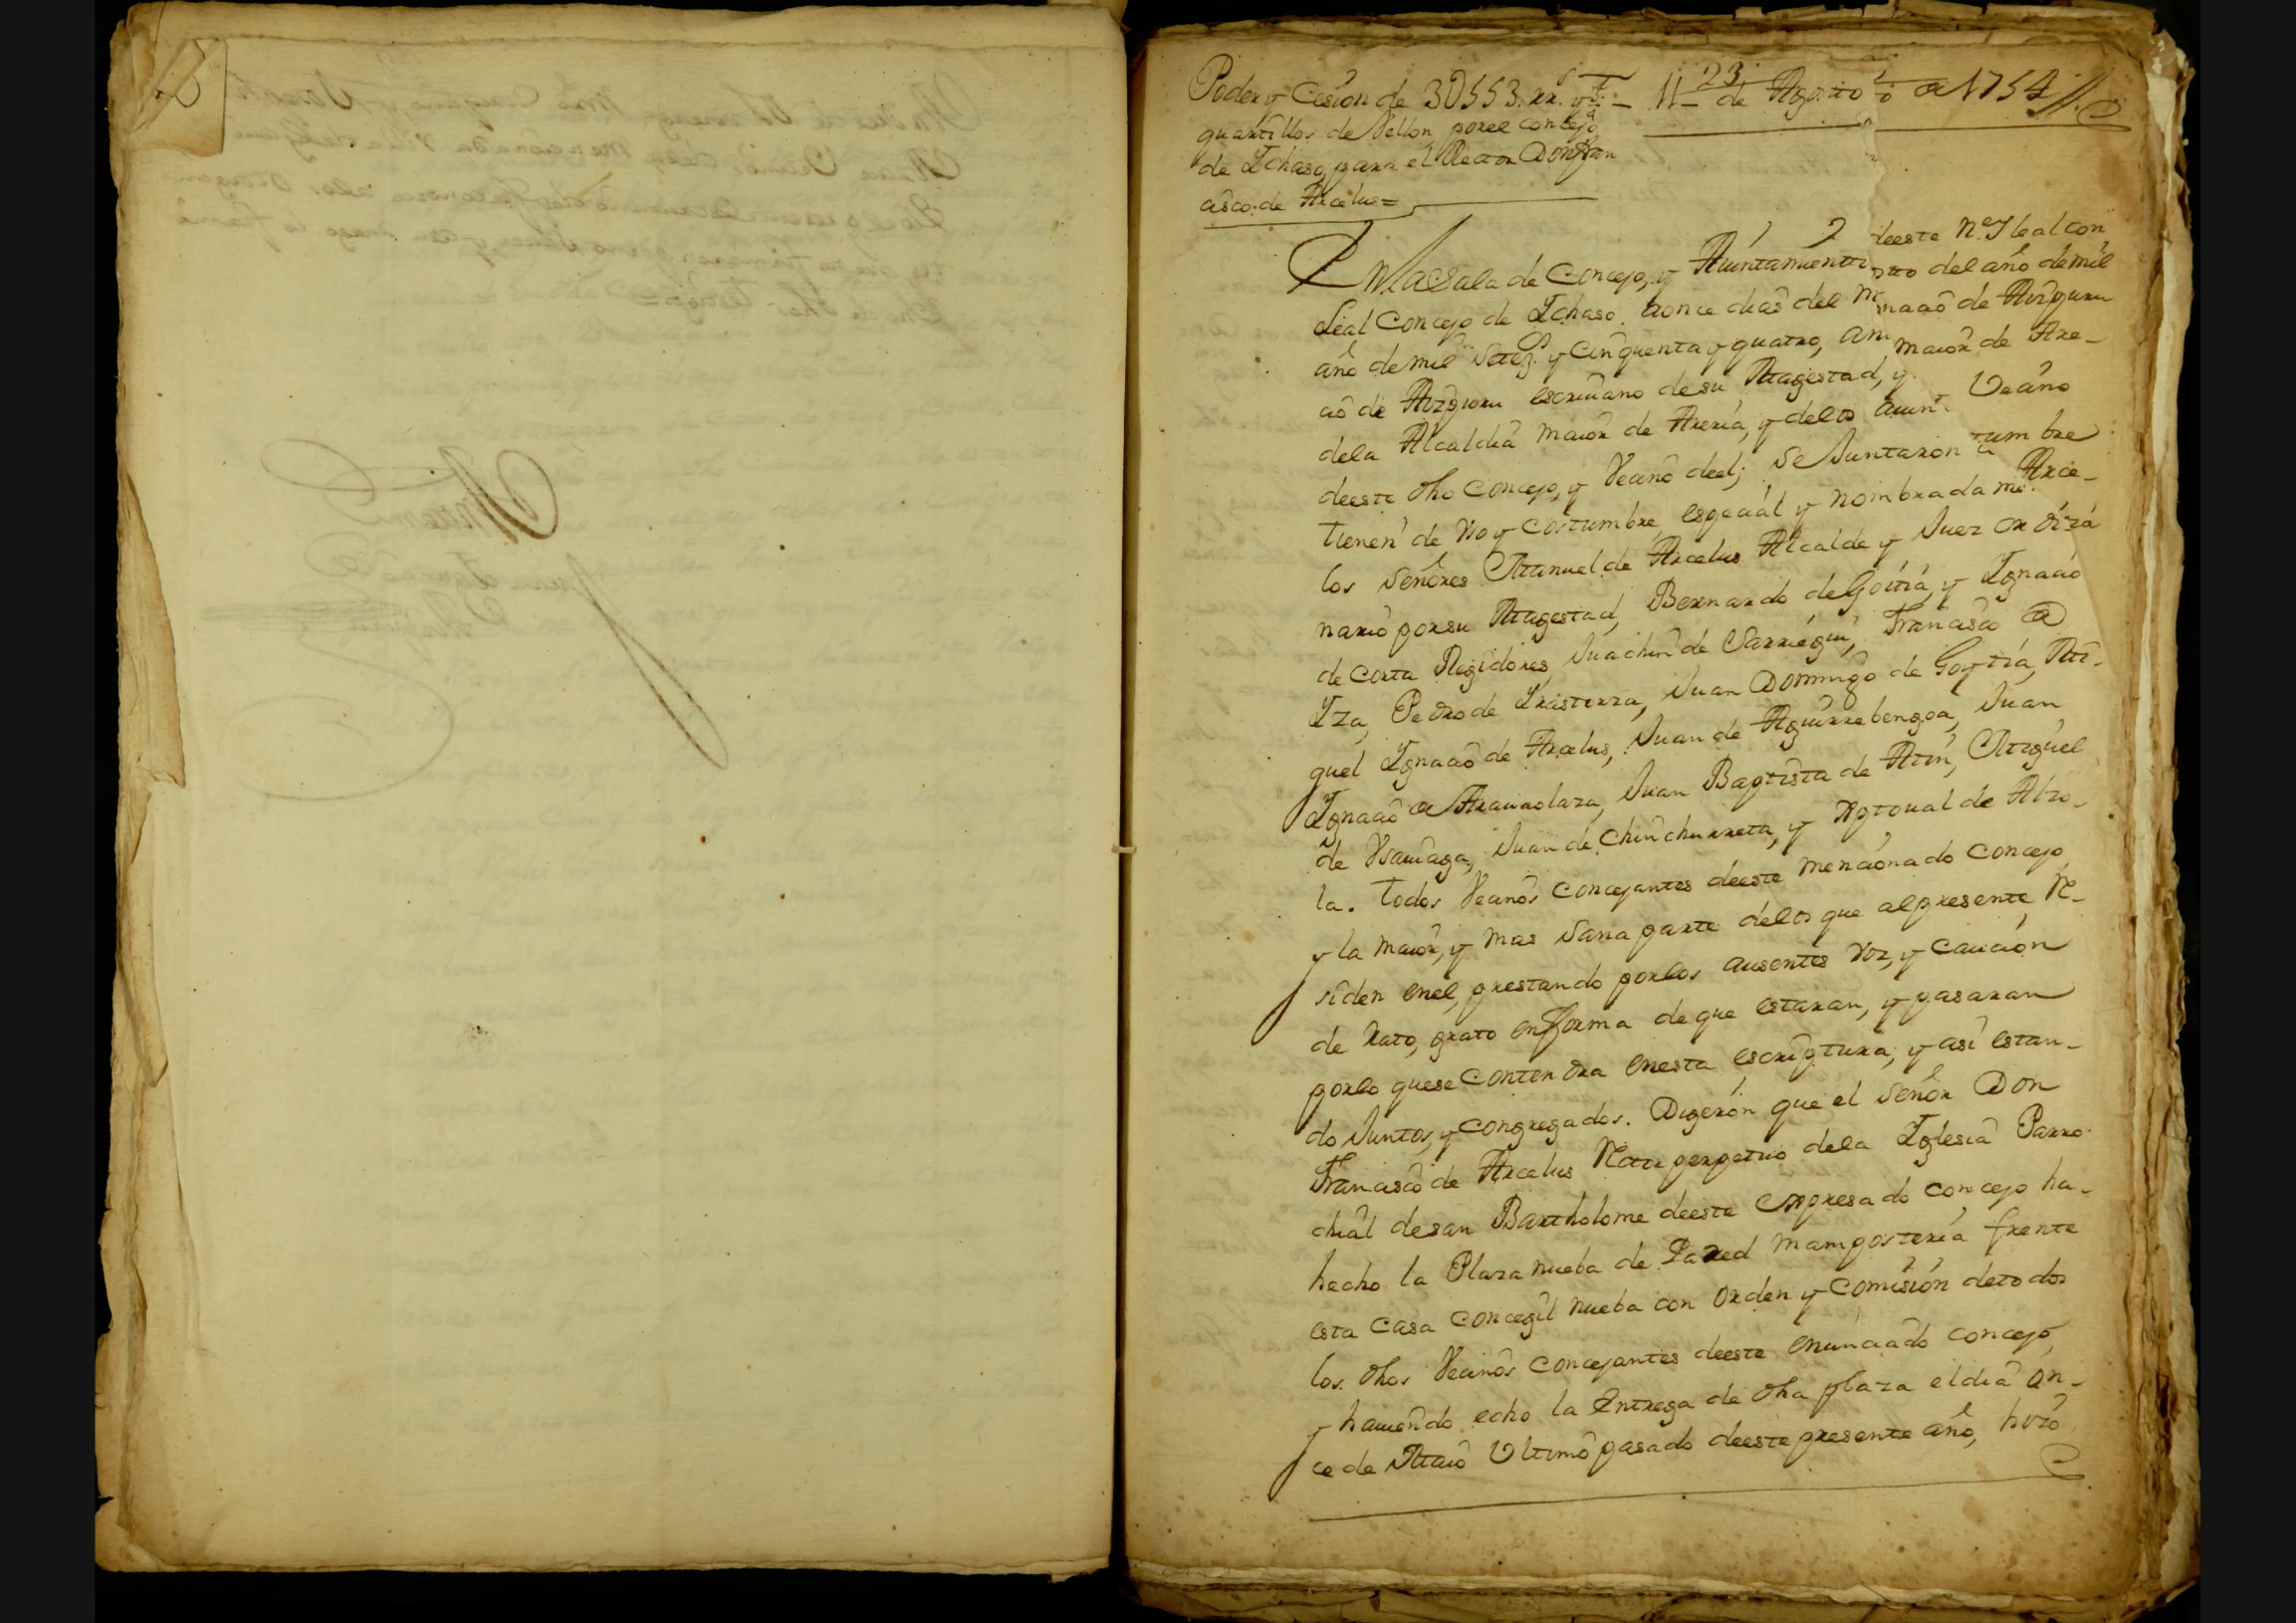 Poder y Cesion de 3U553. rr.s y 3.
quartillos de Vellon por el Concejo
de Ichaso, para el Rector Don Fran
cisco de Arcelus =
11 de Agosto de 1754
23
En la Sala de Concejo, y Aiuntamiento deeste N. y leal con
Leal Concejo de Ichaso, aonce dias del osto del año de mil
año de mil Setez.s y Cinquenta y quatro, nacio de Aizpuru
cio de Aizpuru escriuano de su Magestad, y maior de Are-
dela Alcaldia maior de Areria, y delos aiun Vecino
deeste dho Concejo, y Vecino deel; Se Juntaron tumbre
tienen de Uso y Costumbre, especial y nombradam.te Arce-
los Señores Manuel de Arcelus Alcalde y Juez ordi
nario por su Magestad, Bernardo de Goitia, y Ignacio
de Corta Regidores, Juachin de Sarriegui, Francisco de
Iza, Pedro de Irastorza, Juan Domingo de Goytia, Mi-
guel Ignacio de Arcelus, Juan de Aguirrebengoa, Juan
Ignacio de Arauaolaza, Juan Baptista de Atin, Miguel
de Usauiaga, Juan de Chinchurreta, y Xptoual de Alzo-
la. todos Vecinos Concejantes deeste mencionado Concejo
y la maior, y mas Sana parte delos que alpresente Re-
siden enel, prestando porlos ausentes Voz, y Caucion
de Rato, grato en forma de que estaran, y pasaran
porlo quese Contendra enesta escriptura, y asi estan-
do Juntos, y Congregados. Digeron que el Señor Don
Francisco de Arcelus Retor perpetuo dela Iglesia Parro
chial de san Bartholome deeste expresado Concejo ha-
hecho la Plaza nueba de Pared mamposteria frente
esta Casa Concegil nueba con orden y Comision detodos
los dhos Vecinos Concejantes deeste enunciado concejo,
y hauiendo echo la Entrega de dha plaza eldia on-
ce de Maio Ultimo pasado deeste presente año, hizo